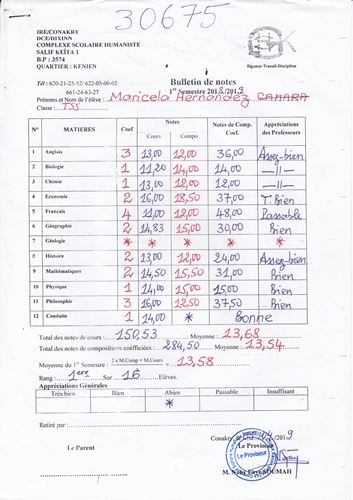 30675
IRE/CONAKRY
DCE/DIXINN
COMPLEXE SCOLAIRE HUMANISTE
SALIF KEÏTA 1
B.P : 3574
QUARTIER : KENIEN
Rigueur-Travail-Discipline
Tél : 620-21-25-52/ 622-05-00-02
661-24-63-27
Bulletin de notes
1er Semestre 2018/2019
Prénoms et Nom de l'élève : Maricela Hernandez CAMARA
Classe : TSS
N° MATIERES Coef Notes Notes de Comp. Coef. Appréciations des Professeurs
Cours Compo
1 Anglais 3 13,00 12,00 36,00 Assez-bien
2 Biologie 1 11,20 14,00 14,00 —//—
3 Chimie 1 13,00 12,00 12,00 —//—
4 Economie 2 16,00 18,50 37,00 T.Bien
5 Français 4 11,00 12,00 48,00 Passable
6 Géographie 2 14,83 15,00 30,00 Bien
7 Géologie * * * * *
8 Histoire 2 13,00 12,00 24,00 Assez-bien
9 Mathématiques 2 14,50 15,50 31,00 Bien
10 Physique 1 14,00 15,00 15,00 Bien
11 Philosophie 3 16,00 12,50 37,50 Bien
12 Conduite 1 14,00 * Bonne
Total des notes de cours : 150,53 Moyenne : 13,68
Total des notes de compositions coéfficiées : 284,50 Moyenne : 13,54
Moyenne du 1er Semestre : 2 x M.Comp + M.Cours = 13,58
3
Rang : 1ere Sur 16 Elèves.
Appréciations Générales
Très bien Bien Abien Passable Insuffisant
*
Retiré par :
Conakry, 2019
Le Parent
Le Proviseur
Le Proviseur
SOUMAH